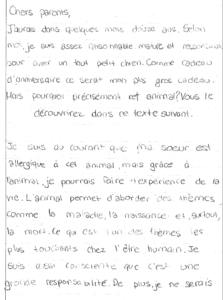 Chers parents,
J'aurais dans quelques mois douze ans. Selon
moi, je suis assez raisonnable mature et
pour avoir un tout petit chien. Comme cadeau
d'anniversaire ce serait mon plus gros cadeau.
Mais pourquoi précisément cet animal? Vous le
découvrirez dans ce texte suivant.
Je suis au courant que ma soeur est
allergique à cet animal, mais grâce à
l'animal, je pourrais faire l'expérience de la
vie. L'animal permet d'aborder des thèmes
comme la maladie, la naissance et, surtout,
la mort. Ce qui est l'un des thèmes les
plus touchants chez l'être humain. Je
suis aussi consciente que c'est une
grande responsabilité. De plus, je ne serais